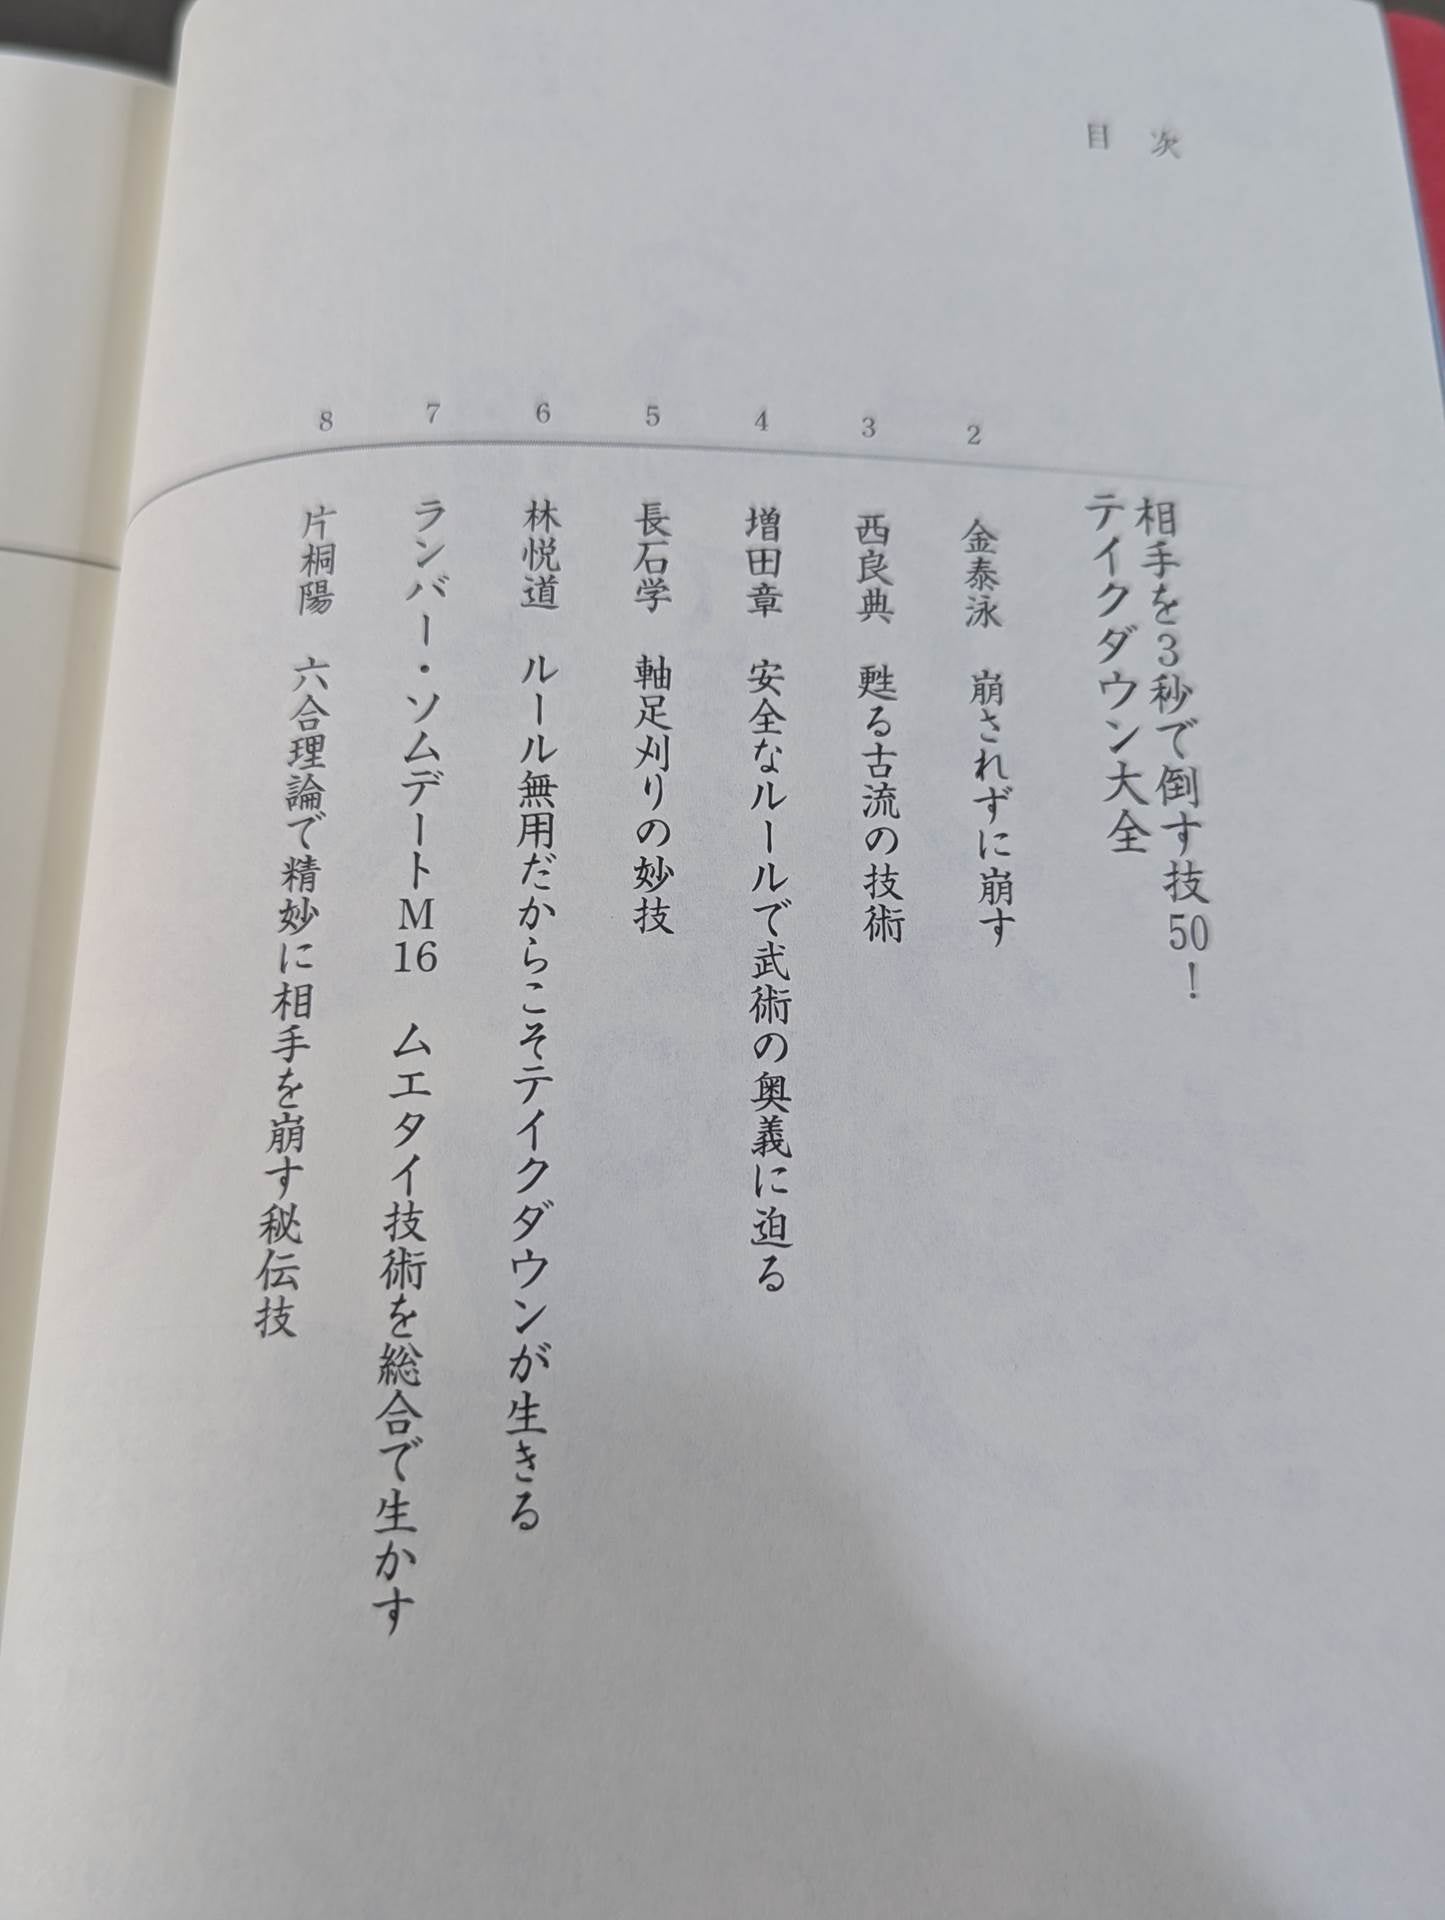 目次
相手を3秒で倒す技50！
テイクダウン大全
2 金泰泳 崩されずに崩す
3 西良典 甦る古流の技術
4 増田章 安全なルールで武術の奥義に迫る
5 長石学 軸足刈りの妙技
6 林悦道 ルール無用だからこそテイクダウンが生きる
7 ランバー・ソムデートM16 ムエタイ技術を総合で生かす
8 片桐陽 六合理論で精妙に相手を崩す秘伝技